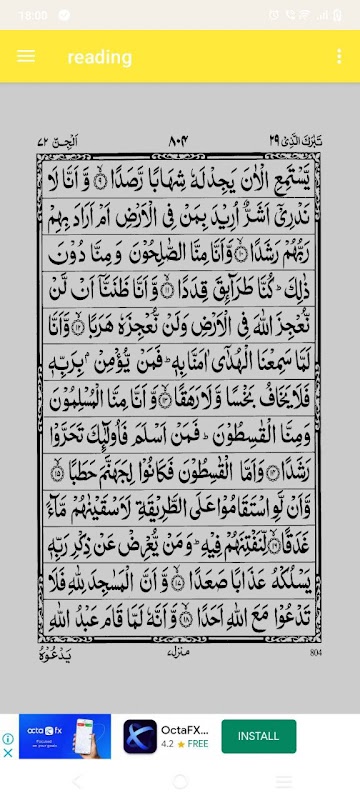 18:00
reading
تَبٰرَكَ الَّذِیْ ۲۹
۸۰۴
اَلْجِنّ ۷۲
یَّسْتَمِعِ الْاٰنَ یَجِدْ لَهٗ شِهَابًا رَّصَدًا ۙ۹ وَّ اَنَّا لَا
نَدْرِیْۤ اَشَرٌّ اُرِیْدَ بِمَنْ فِی الْاَرْضِ اَمْ اَرَادَ بِهِمْ
رَبُّهُمْ رَشَدًا ۙ۱۰ وَّ اَنَّا مِنَّا الصّٰلِحُوْنَ وَ مِنَّا دُوْنَ
ذٰلِكَ ؕ كُنَّا طَرَآىِٕقَ قِدَدًا ۙ۱۱ وَّ اَنَّا ظَنَنَّاۤ اَنْ لَّنْ
نُّعْجِزَ اللّٰهَ فِی الْاَرْضِ وَ لَنْ نُّعْجِزَهٗ هَرَبًا ۙ۱۲ وَّ اَنَّا
لَمَّا سَمِعْنَا الْهُدٰۤی اٰمَنَّا بِهٖ ؕ فَمَنْ یُّؤْمِنْۢ بِرَبِّهٖ
فَلَا یَخَافُ بَخْسًا وَّ لَا رَهَقًا ۙ۱۳ وَّ اَنَّا مِنَّا الْمُسْلِمُوْنَ
وَ مِنَّا الْقٰسِطُوْنَ ؕ فَمَنْ اَسْلَمَ فَاُولٰٓىِٕكَ تَحَرَّوْا
رَشَدًا ۱۴ وَ اَمَّا الْقٰسِطُوْنَ فَكَانُوْا لِجَهَنَّمَ حَطَبًا ۙ۱۵
وَّ اَنْ لَّوِ اسْتَقَامُوْا عَلَی الطَّرِیْقَةِ لَاَسْقَیْنٰهُمْ مَّآءً
غَدَقًا ۙ۱۶ لِّنَفْتِنَهُمْ فِیْهِ ؕ وَ مَنْ یُّعْرِضْ عَنْ ذِكْرِ رَبِّهٖ
یَسْلُكْهُ عَذَابًا صَعَدًا ۙ۱۷ وَّ اَنَّ الْمَسٰجِدَ لِلّٰهِ فَلَا
تَدْعُوْا مَعَ اللّٰهِ اَحَدًا ۙ۱۸ وَّ اَنَّهٗ لَمَّا قَامَ عَبْدُ اللّٰهِ
یَدْعُوْهُ
منزل۷
804
octa fx
OctaFX...
4.2 ★ FREE
INSTALL